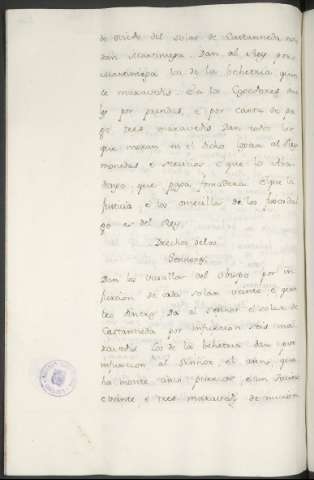 de dicho del solar de Castanneda non
dan Martiniega. Dan al Rey por
martiniega los de la behetria quin
ce maravedis. E a los Cogedores dan
les por prendas, e por carta de pa
go tres maravedis Dan todos los
que moran en el dicho logar al Rey
monedas e servicios e que lo
que paga fonsadera e que la
Justicia e los omecillos de los
es del Rey.
Derechos delos
Sennores.
Dan los vasallos del Obispo por in
furcion de cada solar veinte e quat
tro dineros. Da al sennor el solar de
Castanneda por infurcion seis ma
ravedis. Los de la behetria dan por
infurcion al Sennor, el anno, que
ha monte
e veinte e tres maravedis de